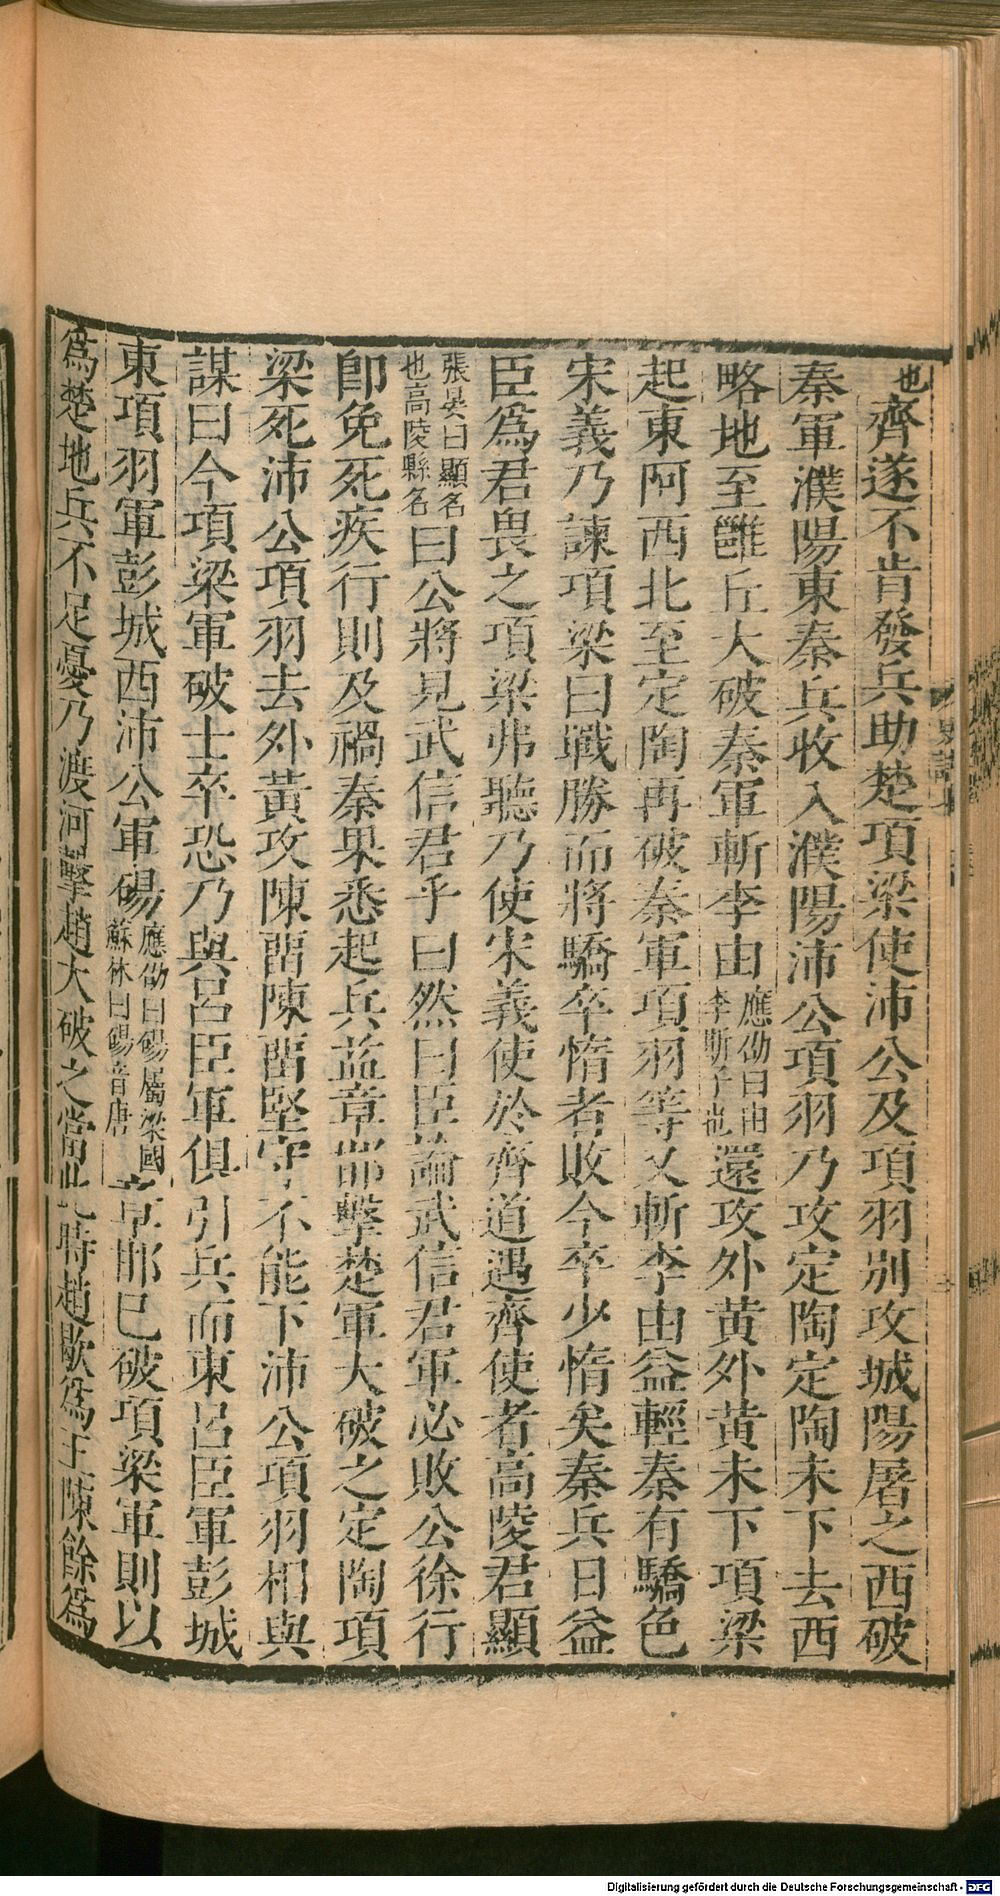 也齊遂不肯發兵助楚項梁使沛公及項羽别攻城陽屠之西破
秦軍濮陽東秦兵收入濮陽沛公項羽乃攻定陶定陶未下去西
略地至雝丘大破秦軍斬李由應劭曰由李斯子也還攻外黄外黄未下項梁
起東阿西北至定陶再破秦軍項羽等又斬李由益輕秦有驕色
宋義乃諫項梁曰戰勝而將驕卒惰者敗今卒少惰矣秦兵日益
臣爲君畏之項梁弗聽乃使宋義使於齊道遇齊使者高陵君顯
張晏曰顯名也高陵縣名曰公將見武信君乎曰然曰臣論武信君軍必敗公徐行
卽免死疾行則及禍秦果悉起兵益章邯擊楚軍大破之定陶項
梁死沛公項羽去外黃攻陳畱陳畱堅守不能下沛公項羽相與
謀曰今項梁軍破士卒恐乃與呂臣軍俱引兵而東呂臣軍彭城
東項羽軍彭城西沛公軍碭應劭曰碭屬梁國蘇林曰碭音唐章邯已破項梁軍則以
爲楚地兵不足憂乃渡河擊趙大破之當此時趙歇爲王陳餘爲
Digitalisierung gefördert durch die Deutsche Forschungsgemeinschaft - DFG